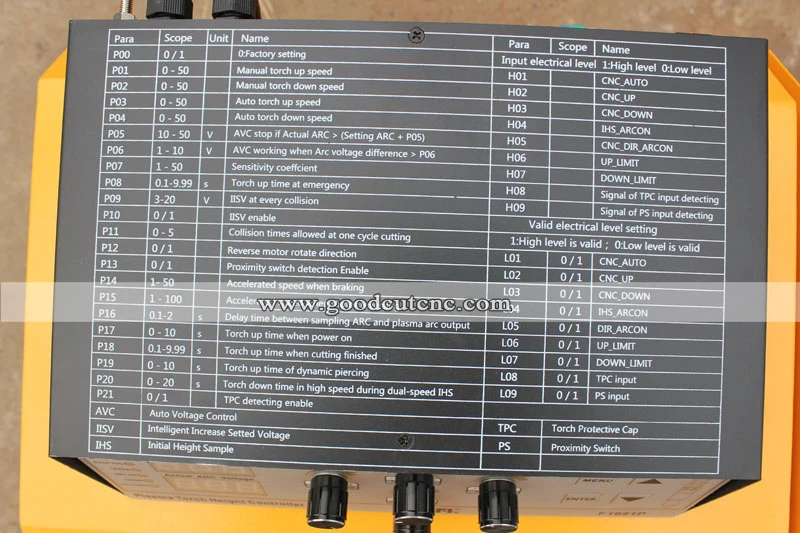 Para Scope Unit Name
P00 0 / 1 0:Factory setting
P01 0 - 50 Manual torch up speed
P02 0 - 50 Manual torch down speed
P03 0 - 50 Auto torch up speed
P04 0 - 50 Auto torch down speed
P05 10 - 50 V AVC stop if Actual ARC > (Setting ARC + P05)
P06 1 - 10 V AVC working when Arc voltage difference > P06
P07 1 - 50 Sensitivity coeffcient
P08 0.1-9.99 s Torch up time at emergency
P09 3-20 V IISV at every collision
P10 0 / 1 IISV enable
P11 0 - 5 Collision times allowed at one cycle cutting
P12 0 / 1 Reverse motor rotate direction
P13 0 / 1 Proximity switch detection Enable
P14 1- 50 Accelerated speed when braking
P15 1 - 100
P16 0.1-2 s Delay time between sampling ARC and plasma arc output
P17 0 - 10 s Torch up time when power on
P18 0.1-9.99 s Torch up time when cutting finished
P19 0 - 10 s Torch up time of dynamic piercing
P20 0 - 20 s Torch down time in high speed during dual-speed IHS
P21 0 / 1 TPC detecting enable
AVC Auto Voltage Control
IISV Intelligent Increase Setted Voltage
IHS Initial Height Sample
Para Scope Name
Input electrical level 1:High level 0:Low level
H01 CNC_AUTO
H02 CNC_UP
H03 CNC_DOWN
H04 IHS_ARCON
H05 CNC_DIR_ARCON
H06 UP_LIMIT
H07 DOWN_LIMIT
H08 Signal of TPC input detecting
H09 Signal of PS input detecting
Valid electrical level setting
1:High level is valid ; 0:Low level is valid
L01 0 / 1 CNC_AUTO
L02 0 / 1 CNC_UP
L03 0 / 1 CNC_DOWN
L04 0 / 1 IHS_ARCON
L05 0 / 1 DIR_ARCON
L06 0 / 1 UP_LIMIT
L07 0 / 1 DOWN_LIMIT
L08 0 / 1 TPC input
L09 0 / 1 PS input
TPC Torch Protective Cap
PS Proximity Switch
www.goodcutcnc.com
Voltage
MENU
Plasma Torch Height Controller
ENTER
F1621P